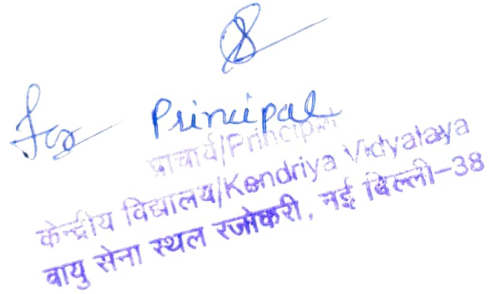 For Principal
प्राचार्य/Principal
केन्द्रीय विद्यालय/Kendriya Vidyalaya
वायु सेना स्थल रजोकरी, नई दिल्ली-38